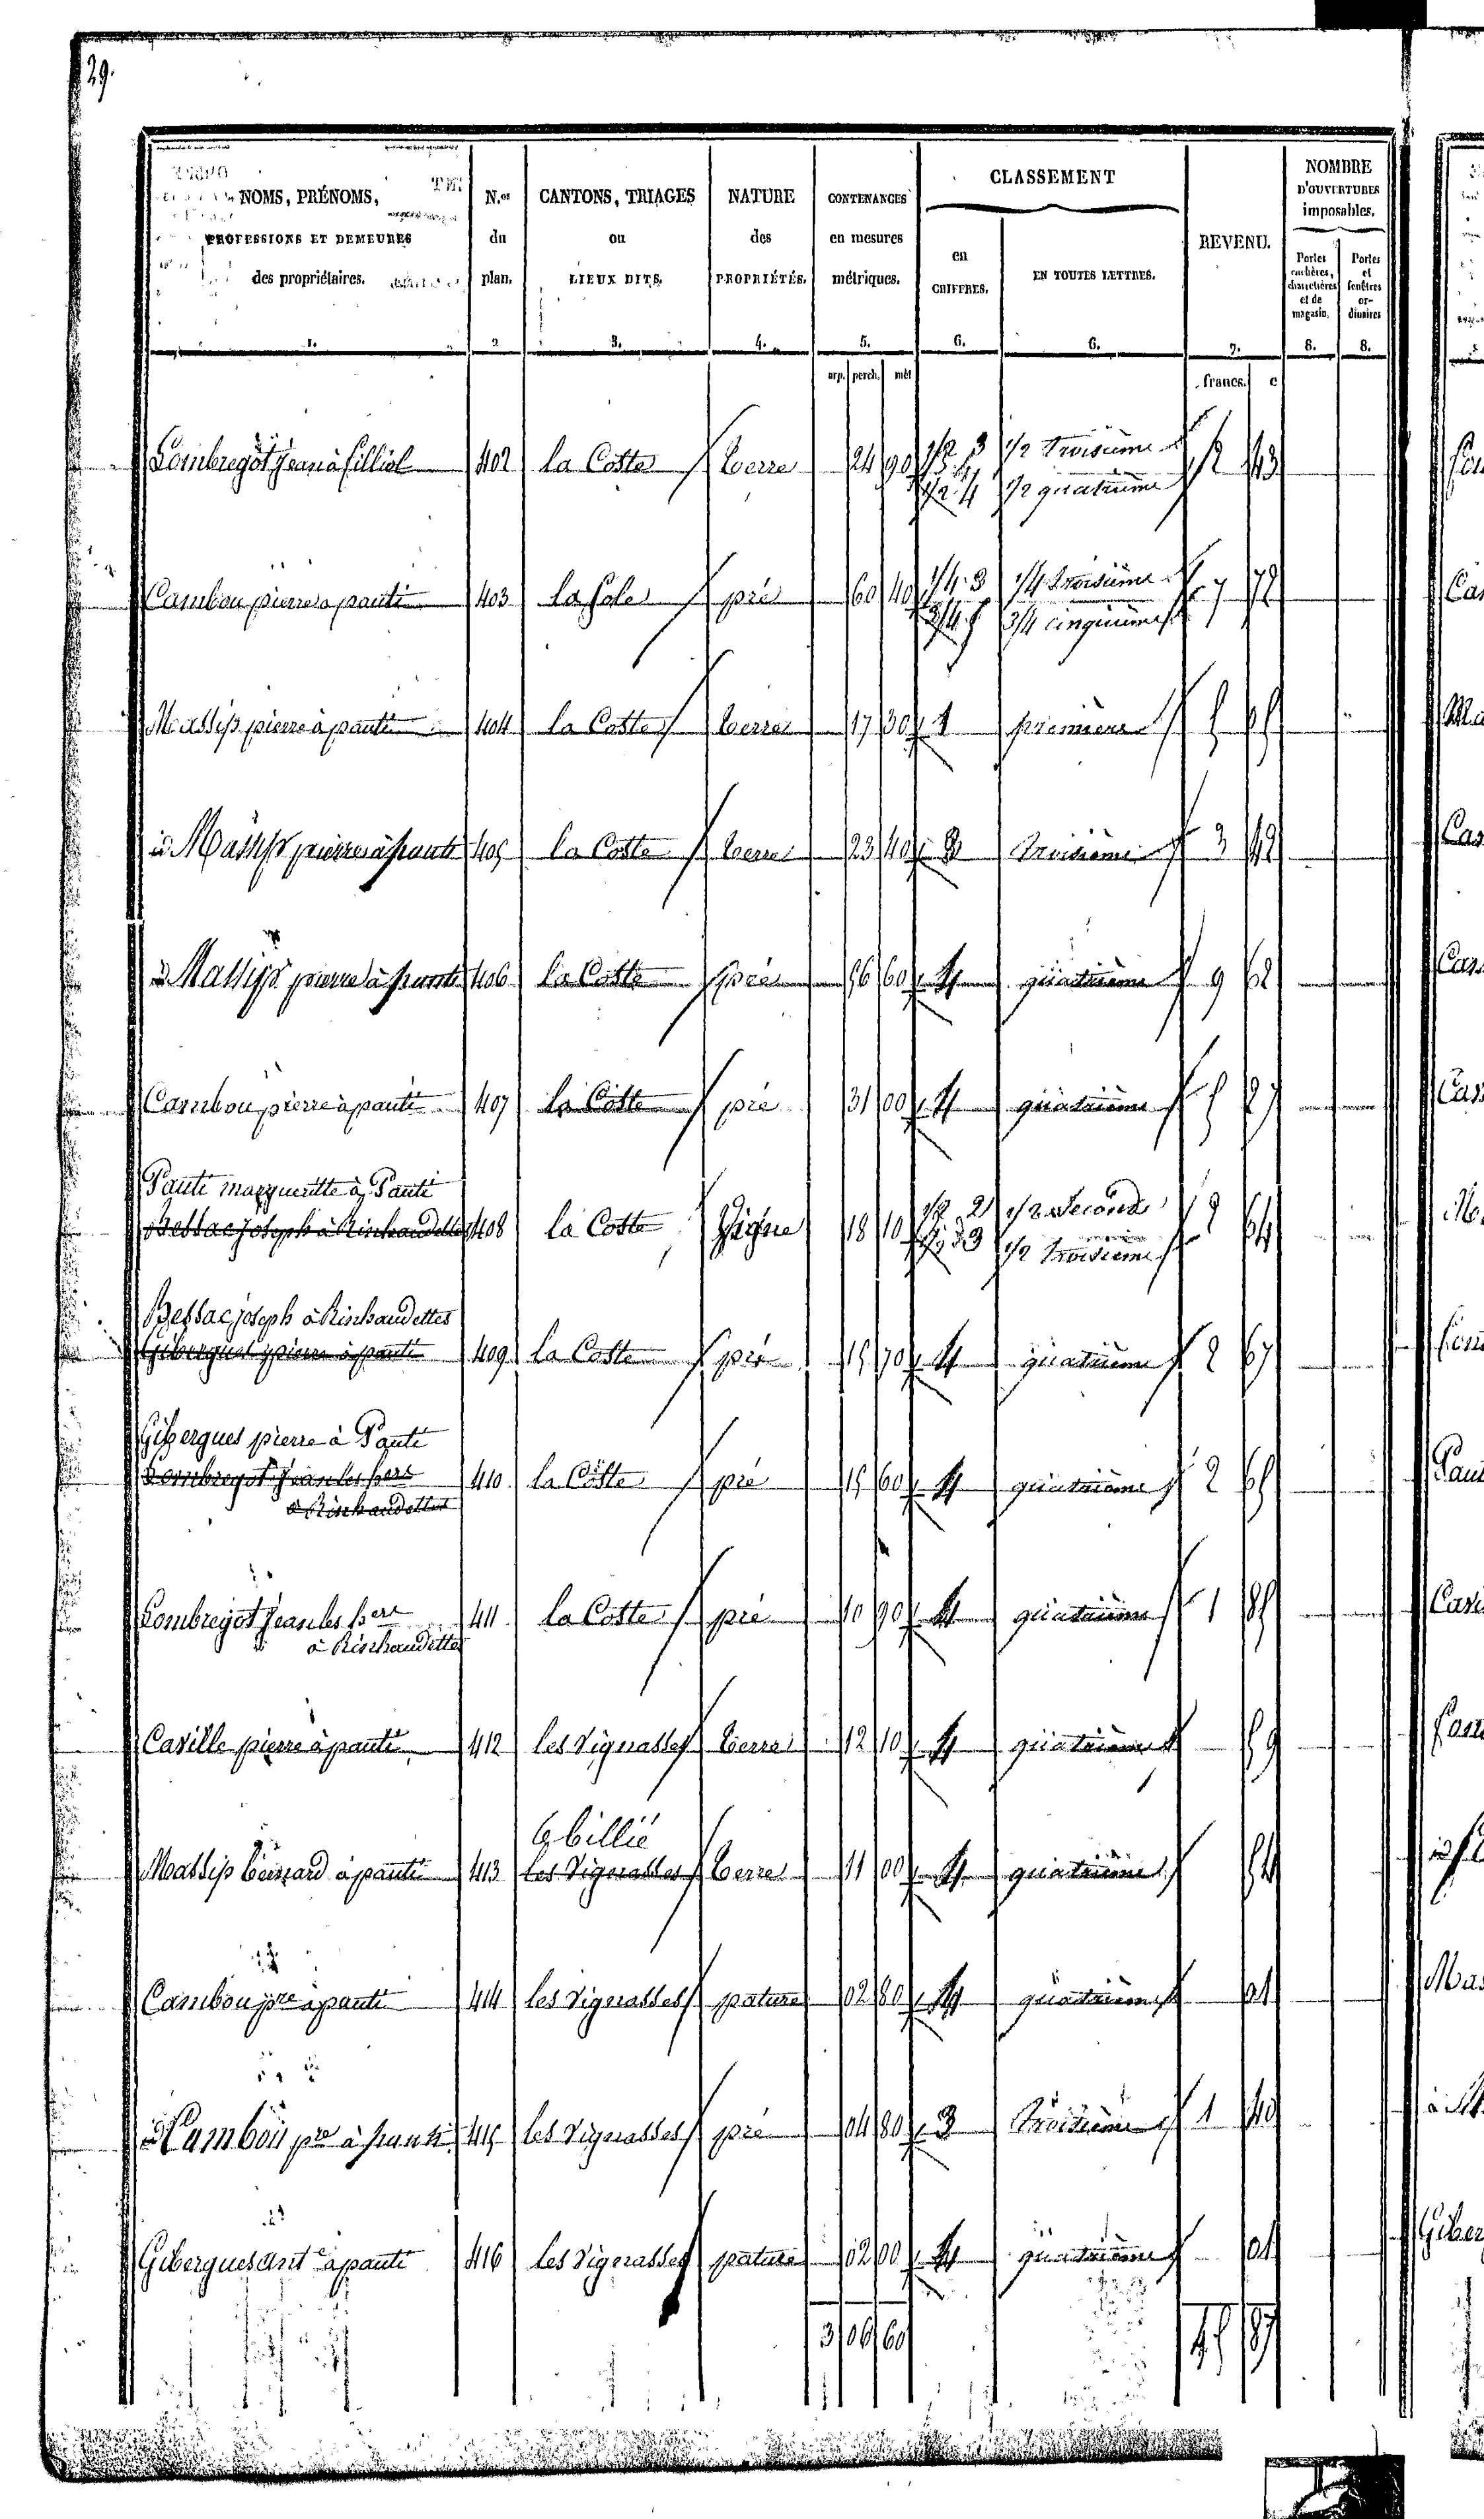 29.
NOMS, PRÉNOMS, PROFESSIONS ET DEMEURES des propriétaires. 1.
N.os du plan. 2
CANTONS, TRIAGES ou LIEUX DITS. 3.
NATURE des PROPRIÉTÉS. 4.
CONTENANCES en mesures métriques. 5.
CLASSEMENT
en CHIFFRES. 6.
EN TOUTES LETTRES. 6.
REVENU. 7.
NOMBRE D'OUVERTURES imposables.
Portes cochères, charretières et de magasin. 8.
Portes et fenêtres ordinaires 8.
arp. perch. mèt francs. c
Combregot Jean à filliol 402 la Coste terre 24 90 1/2 3 1/2 troisieme 2 43
1/2 4 1/2 quatrieme
Cambou pierre a pauti 403 la sole pré 60 40 1/4 3 1/4 troisieme 7 72
3/4 5 3/4 cinquieme
Massip pierre à pauti 404 la Coste terre 17 30 1 premiere
id Massip pierre à pauti 405 la Coste terre 23 40 3 troisieme 3 42
id Massip pierre à pauti 406 la Coste pré 56 60 4 quatrieme 9 62
Cambou pierre à pauti 407 la Coste pré 31 00 4 quatrieme 5 27
Pauti marguerittte à Pauti
Bessac joseph à Rischaudettes 408 la Coste Vigne 18 10 1/2 2 1/2 Seconde
1/2 3 1/2 troisieme
Bessac joseph à Rischaudettes
Gibergues pierre à pauti 409 la Coste pré 15 70 4 quatrieme 2 67
Gibergues pierre à Pauti
Combregot Jean les hers 410 la Coste pré 15 60 4 quatrieme 2 65
a Rischaudettes
Combregot Jean les hers 411 la Coste pré 10 90 4 quatrieme 1 85
à Rischaudettes
Caville pierre à pauti 412 les Vignasses terre 12 10 4 quatrieme 59
Gbillié
Massip à pauti 413 les Vignasses terre 11 00 4 quatrieme 54
Cambou pre à pauti 414 les Vignasses pature 02 80 4 quatrieme 01
id Cambou pre à pauti 415 les Vignasses pré 04 80 3 troisieme 1 40
Gibergues Ant à pauti 416 les Vignasses pature 02 00 4 quatrieme 01
3 06 60